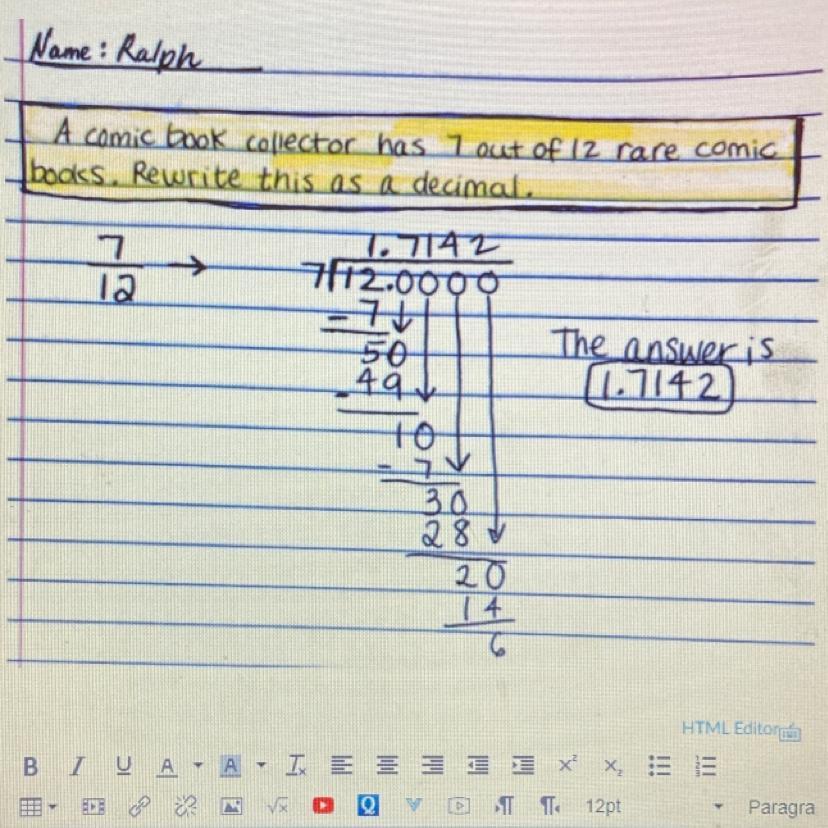 Name: Ralph
A comic book collector has 7 out of 12 rare comic
books. Rewrite this as a decimal.
7
12
→
1.7142
7 12.0000
- 7
50
- 49
10
- 7
30
28
20
14
6
The answer is
1.7142
HTML Editor
B I U A A Ix x² x₂
√x 12pt Paragra